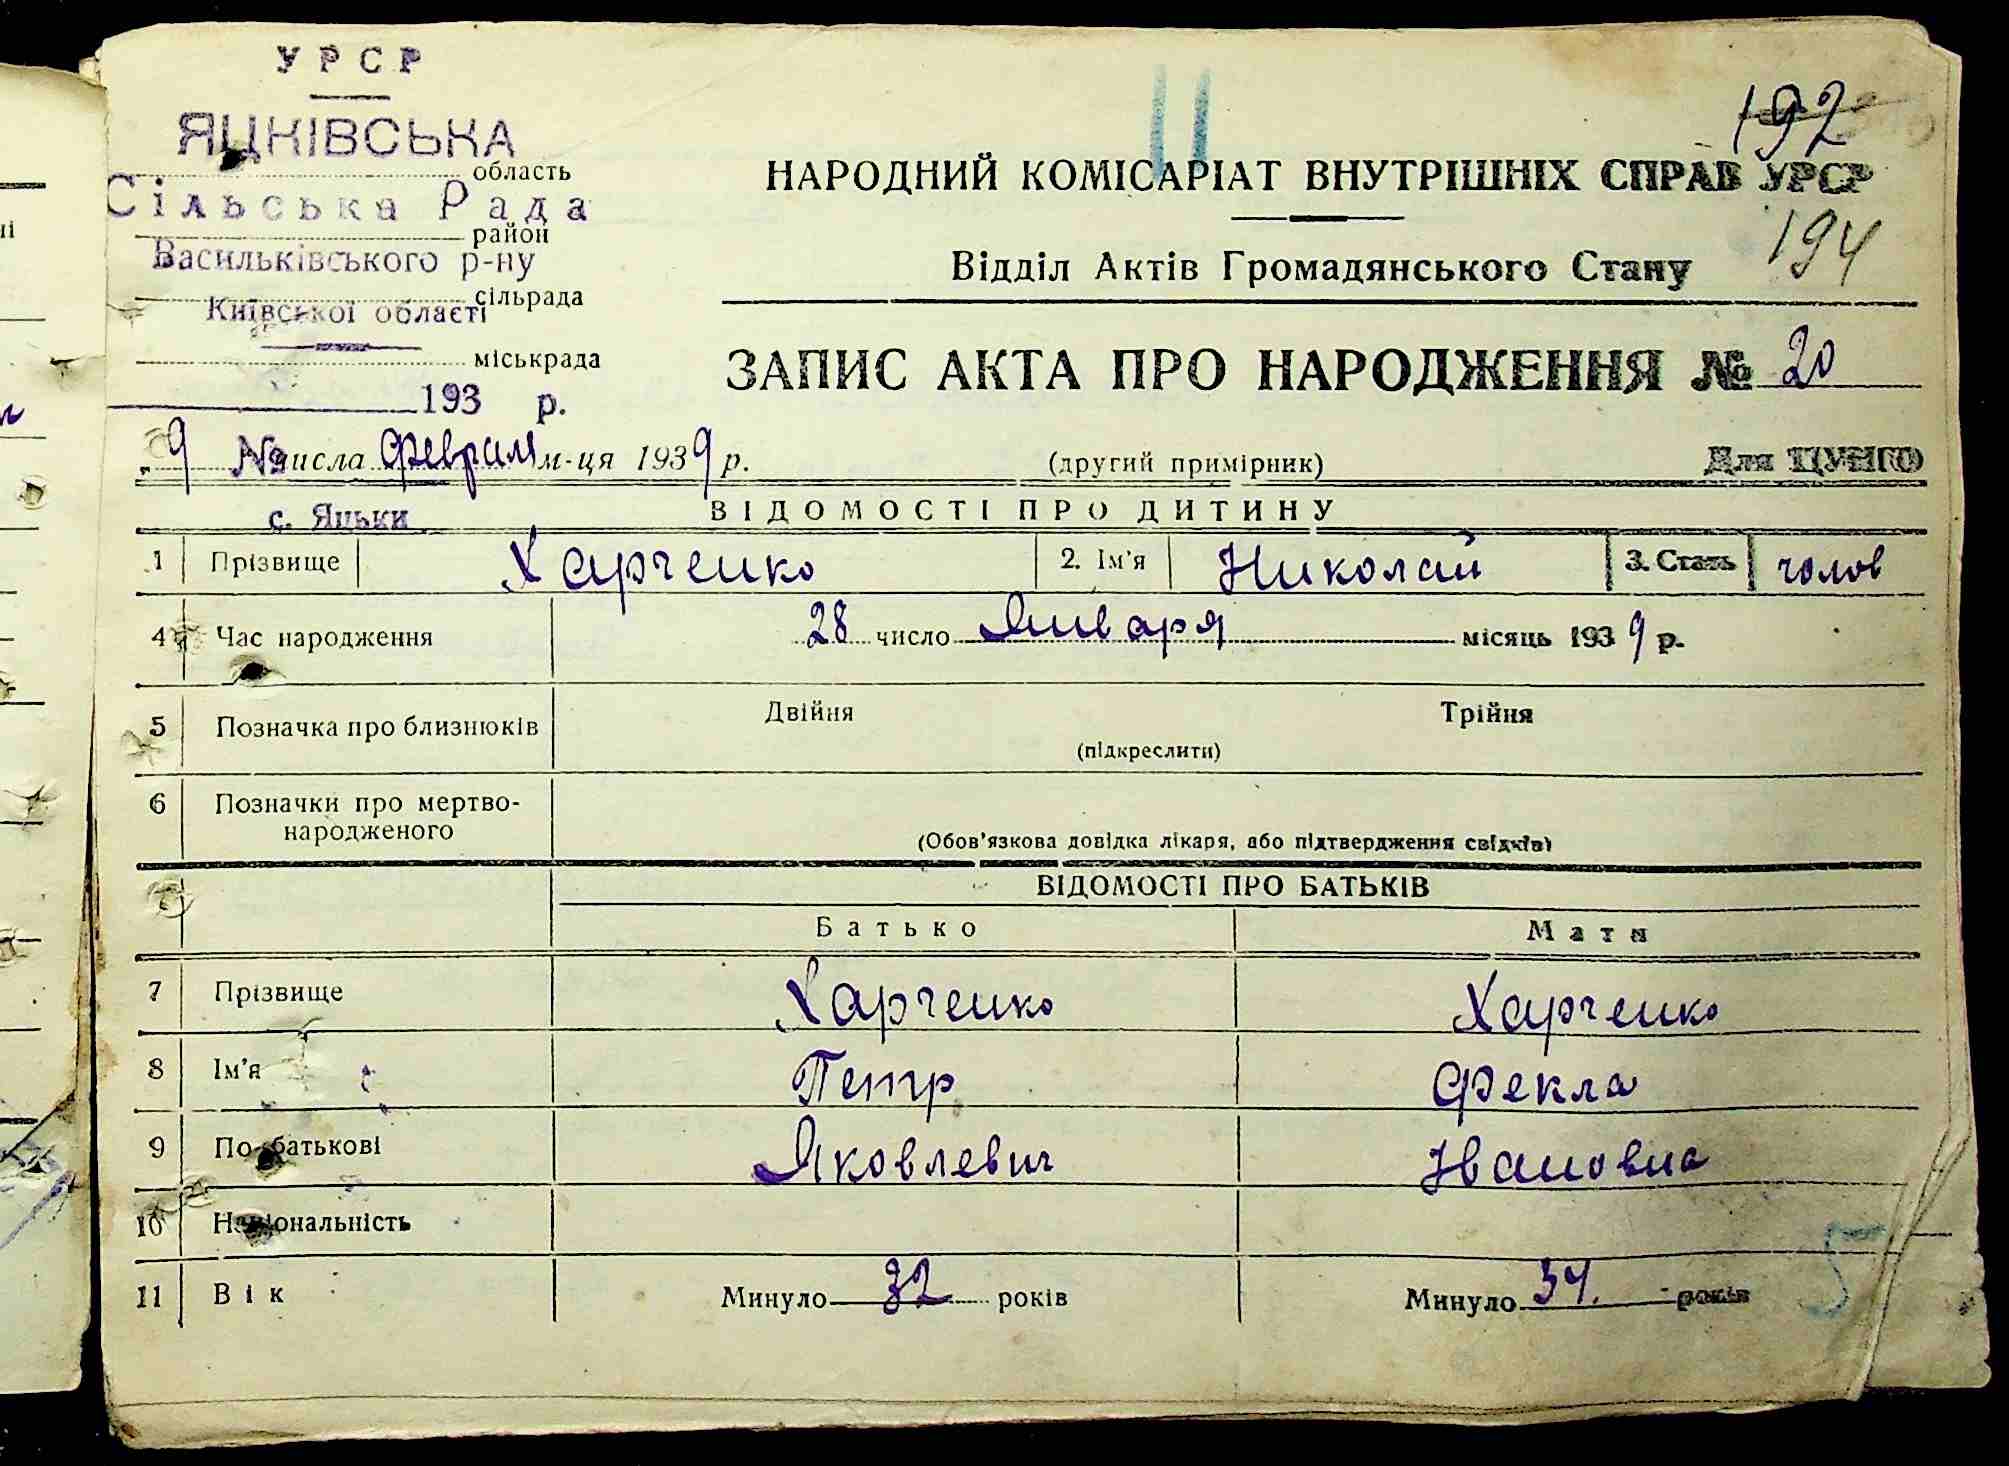 УРСР
11
192
ЯЦКІВСЬКА
область
НАРОДНИЙ КОМІСАРІАТ ВНУТРІШНІХ СПРАВ УРСР
Сільська Рада
район
194
Васильківського р-ну
Відділ Актів Громадянського Стану
сільрада
Київської області
міськрада
ЗАПИС АКТА ПРО НАРОДЖЕННЯ № 20
193 р.
„9 № числа Февраля м-ця 1939 р.
(другий примірник)
Для ЦУНГО
с. Яцьки
ВІДОМОСТІ ПРО ДИТИНУ
1 Прізвище Харченко 2. Ім'я Николай 3. Стать чолов
4 Час народження 28 число Января місяць 1939 р.
5 Позначка про близнюків Двійня Трійня
(підкреслити)
6 Позначки про мертво-
народженого
(Обов'язкова довідка лікаря, або підтвердження свідків)
ВІДОМОСТІ ПРО БАТЬКІВ
Батько Мати
7 Прізвище Харченко Харченко
8 Ім'я Петр Фекла
9 По батькові Яковлевич Ивановна
10 Національність
11 Вік Минуло 32 років Минуло 34. років
5